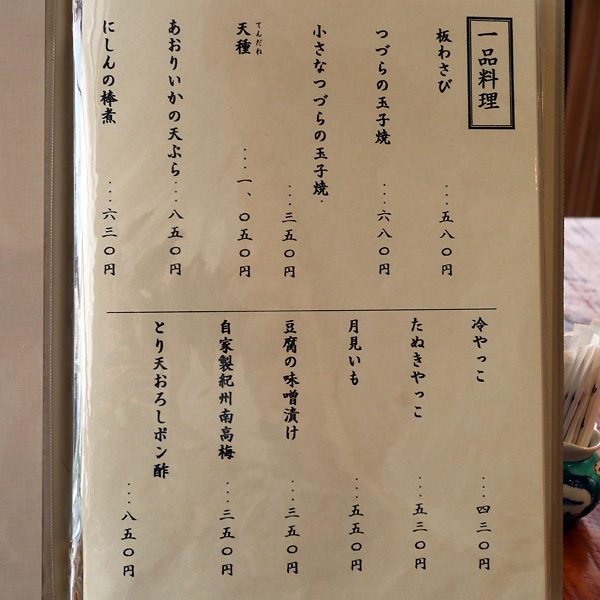 一品料理
板わさび ・・・五八〇円
つづらの玉子焼 ・・・六八〇円
小さなつづらの玉子焼・
・・・三五〇円
天種 ・・・一、〇五〇円
てんだね
あおりいかの天ぷら・・・八五〇円
にしんの棒煮 ・・・六三〇円
冷やっこ ・・・四三〇円
たぬきやっこ ・・・五三〇円
月見いも ・・・五五〇円
豆腐の味噌漬け ・・・三五〇円
自家製紀州南高梅 ・・・三五〇円
とり天おろしポン酢
・・・八五〇円